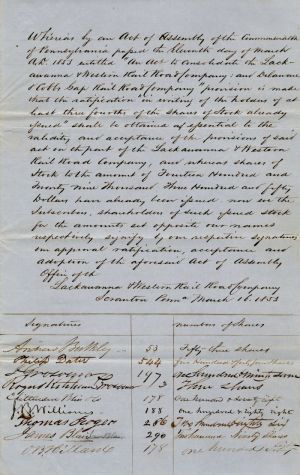 Whereas by an Act of Assembly of the Commonwealth
of Pennsylvania passed the Eleventh day of March
A.D. 1853 entitled "An Act to consolidate the Lack-
awanna & Western Rail Road Company: and Delaware
& Cobbs Gap Rail Road Company" provision is made
that the ratification in writing of the holders of at
least three fourths of the shares of Stock already
issued shall be obtained as essential to the
validity and acceptance of the provisions of said
act on the part of the Lackawanna & Western
Rail Road Company, and whereas shares of
Stock to the amount of Fourteen Hundred and
Twenty nine Thousand Three Hundred and fifty
Dollars have already been issued now we the
Subscribers, shareholders of such issued stock
for the amounts set opposite our names
respectively signify by our respective signatures
our approval ratification acceptance and
adoption of the aforesaid Act of Assembly
Office of the
Lackawanna & Western Rail Road Company
Scranton Penna March 16. 1853
Signatures number of Shares
53 Fifty three shares
544
197 One Hundred Ninety Seven
3 Three Shares
178 One hundred & Seventy Eight
Williams 188 One hundred & Eighty Eight
Thomas 286 Two Hundred Eighty Six
James Blair 290 Two hundred Ninety shares
178